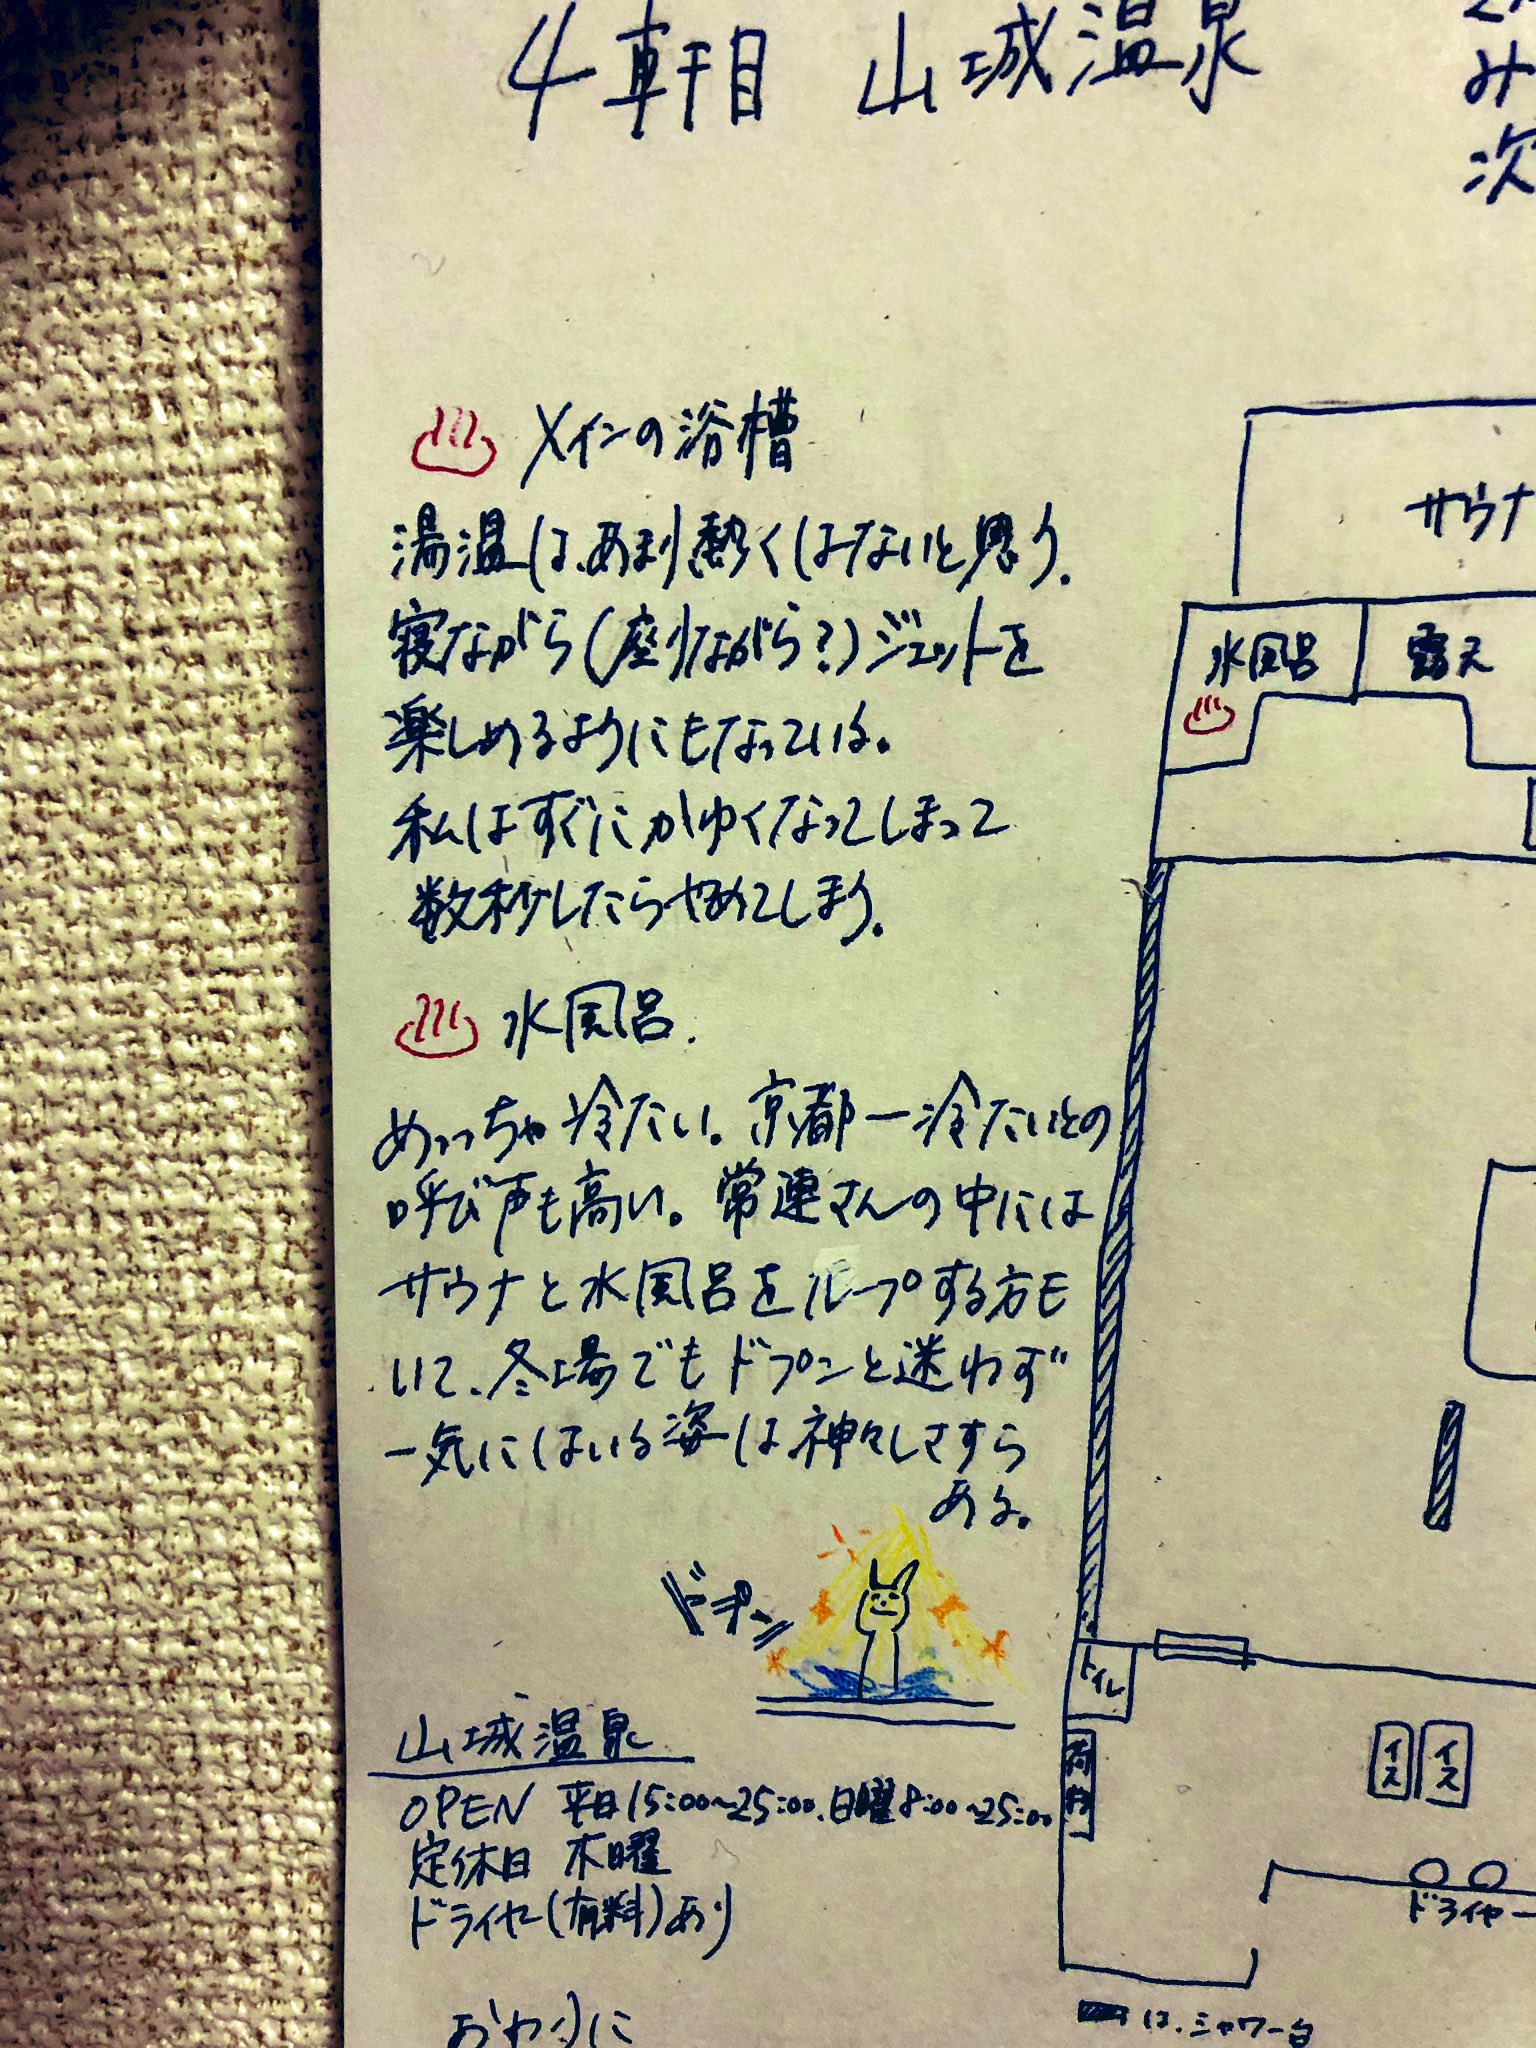 4軒目 山城温泉
み
次
メインの浴槽
湯温は、あまり熱くはないと思う。
寝ながら(座りながら?)ジェットを
楽しめるようにもなっている。
私はすぐにかゆくなってしまって
数秒したらやめてしまう。
水風呂.
めっちゃ冷たい。京都一冷たいとの
呼び声も高い。常連さんの中には
サウナと水風呂をループする方も
いて、冬場でもドプンと迷わず
一気にはいる姿は神々しさすら
ある。
ドプン
山城温泉
OPEN 平日15:00~25:00.日曜8:00~25:00
定休日 木曜
ドライヤー(有料)あり
おわりに
サウナ
水風呂
露天
トイレ
荷物
イス
イス
ドライヤー
は、シャワー台